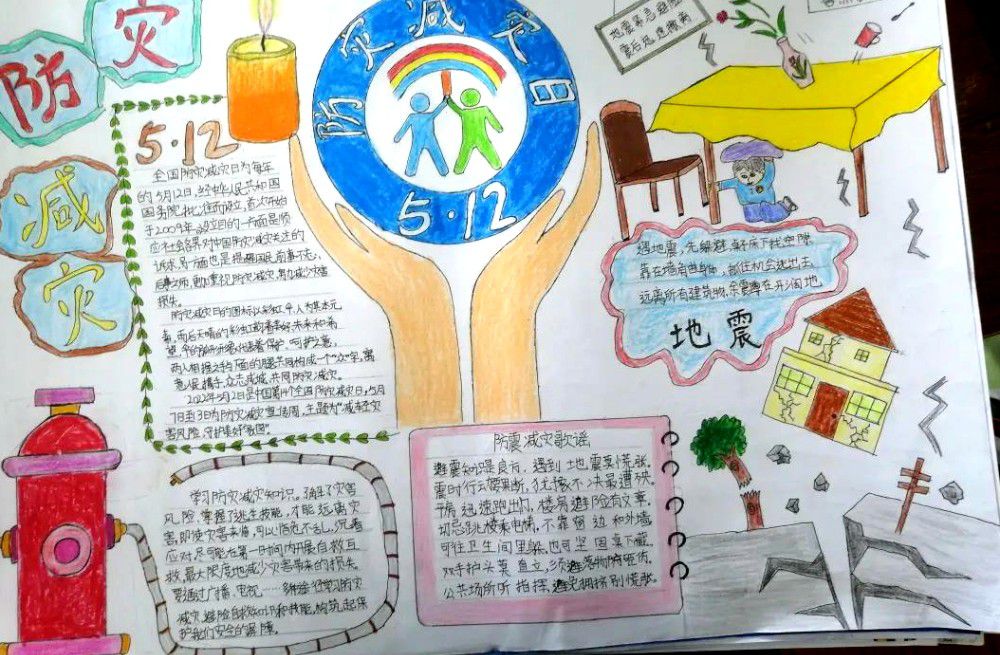 防灾
减灾
防灾减灾日
5·12
5·12
全国防灾减灾日为每年
的5月12日,经中华人民共和国
国务院批准而设立,首次开始
于2009年,设立目的一方面是顺
应社会各界对中国防灾减灾关注的
诉求,另一方面也是提醒国民前事不忘,
后事之师,更加重视防灾减灾,努力减少灾害
损失。
防灾减灾日的图标以彩虹、伞、人为基本元
素,雨后天晴的彩虹
两人相握之手与下面的腿共同构成一个"众"字,寓
意 携手,众志成城,共同防灾减灾。
日是中国第14个全国防灾减灾日,5月
7日至13日为防灾减灾宣传周,主题为"减轻灾
害风险 守护美好家园"
学习防灾减灾知识。 了灾害
风险,掌握了逃生技能,才能远离灾
害,即使灾害来临,可以临危不乱,沉着
应对,尽可能在第一时间内开展自救互
救,最大限度地减少灾害带来的损失。
要通过广播、电视……等 学习防灾
减灾、避险自救知识和技能,构筑起保
护我们安全的屏障。
防震减灾歌谣
避震知识是良方,遇到地震要慌张,
震时行动要果断,犹豫不决最遭殃。
平房迅速跑出门,楼房避险有文章,
切忌跳楼乘电梯,不靠窗边和外墙
可往卫生间里躲,也可坚固桌下藏,
双手护头莫直立,须避落物防砸伤,
公共场所听指挥,避免拥挤别慌张。
地震紧急避险
震后迅速撤离
遇地震,先躲避,桌子床下找空隙
靠在墙角曲身体,抓住机会逃出去
远离所有建筑物,余震蹲在开阔地
地震